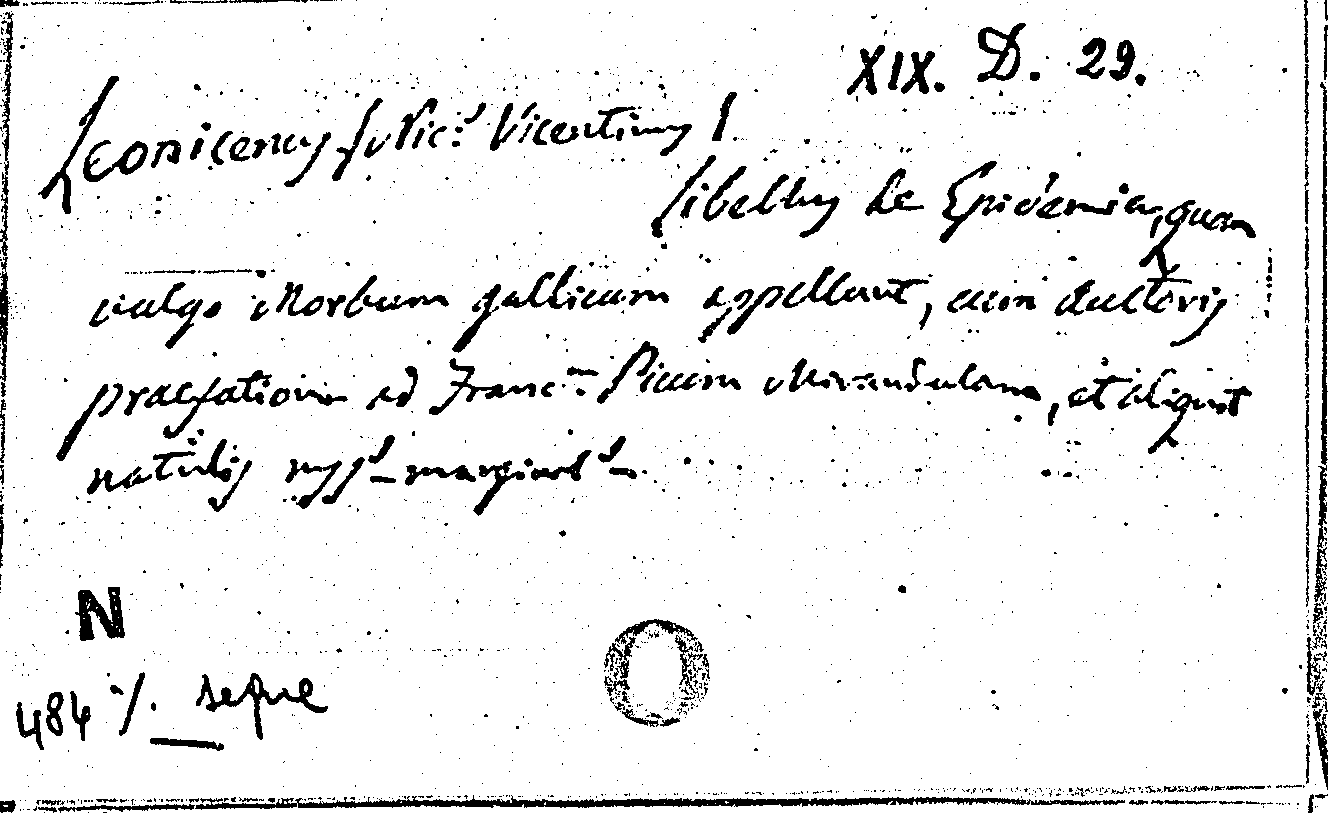 XIX. D. 29.
Leonicenus Nic:s Vicentinus
Libellus de Epidemia, quam
vulgo Morbum gallicum appellant, cum Auctoris
praefatione ad Franc:m Picum Mirandulam, et aliquot
notulis mss. marginal.
N
484 /. segue